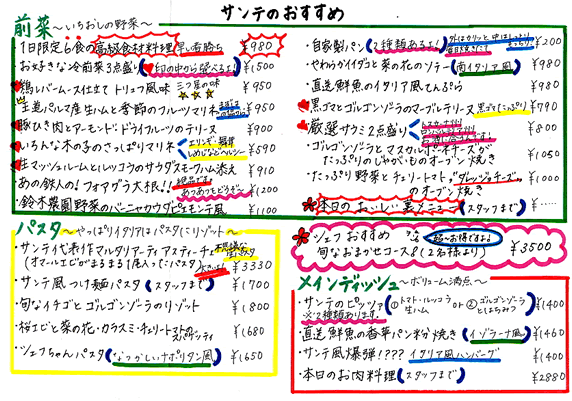 サンテのおすすめ
前菜 〜いちおしの野菜〜
・1日限定6食の高級食材料理 早い者勝ち ¥980
・お好きな冷前菜3点盛り(♥印の中から選べるよ) ¥1500
・鶏レバームース仕立て トリュフ風味 三つ星の味 ¥950
・王道パルマ産生ハムと季節のフルツマリネ ¥950
・豚ひき肉とアーモンド・ドライフルーツのテリーヌ ¥900
・いろんな木の子のさっぱりマリネ エリンギ、舞茸 しめじなどヘルシー ¥590
・生マッシュルームとルッコラのサラダスモークハム添え ¥910
・あの鉄人の!フォアグラ大根!! あつあつをどうぞ ¥1200
・鈴木農園野菜のバーニャカウダピエモンテ風 ¥1100
・自家製パン(2種類あるよ!) ¥200
・やわらかイイダコと菜の花のソテー(南イタリア風) ¥980
・直送鮮魚のイタリア風てんぷら ¥980
・黒ゴマとゴルゴンゾーラのマーブルテリーヌ 黒ゴマたっぷり ¥790
・厳選サラミ2点盛り ¥800
・ゴルゴンゾーラとマスカルポーネチーズが
たっぷりのじゃがいものオーブン焼き ¥1050
・たっぷり野菜とチェリートマト、グレッツォチーズの
オーブン焼き ¥1000
・本日のおいしい裏メニュー(スタッフまで) ¥……
パスタ 〜やっぱりイタリアはパスタにリゾット〜
・サンテ代表作マルタリアーティアスティーチェ
(オマールエビがまるまる1尾入ったパスタ) ¥3330
・サンテ風つけ麺パスタ(スタッフまで) ¥1700
・旬なイチゴとゴルゴンゾーラのリゾット ¥1800
・桜エビと菜の花・カラスミ・チェリートマトの
スパゲッティ ¥1680
・シェフちゃんパスタ(なつかしいナポリタン風) ¥1650
シェフおすすめ
旬なおまかせコース8(2名様より) ¥3500
メインディッシュ 〜ボリューム満点〜
・サンテのピッツァ ①トマト・ルッコラ 生ハム OR ②ゴルゴンゾーラ とはちみつ ¥1400
※2種類あります。
・直送鮮魚の香草パン粉焼き(イゾラーナ風) ¥1460
・サンテ風爆弾!??? イタリア風ハンバーグ ¥1400
・本日のお肉料理(スタッフまで) ¥2880